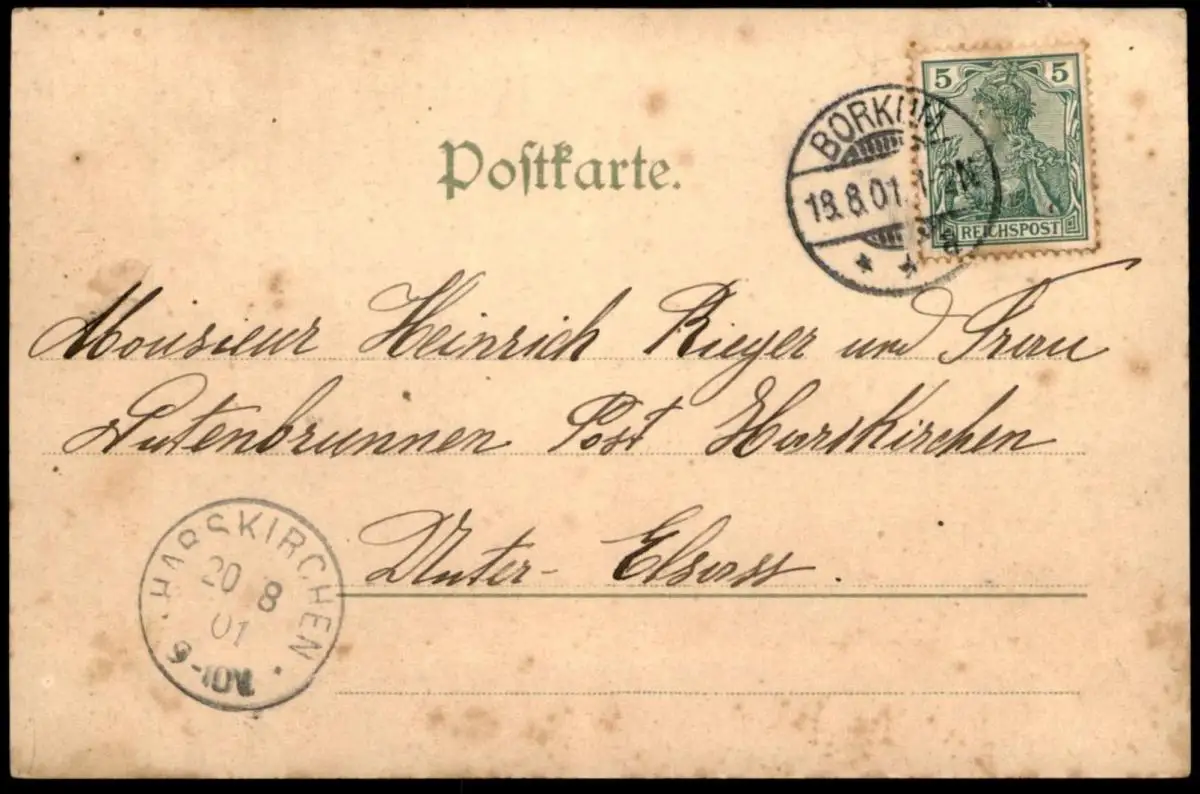 5 5
REICHSPOST
BORKUM
18.8.01. 1-2N
a
Postkarte.
Monsieur Heinrich Rieger und Frau
Lutenbrunnen Post Harskirchen
Unter-Elsass.
HARSKIRCHEN
20 8
01